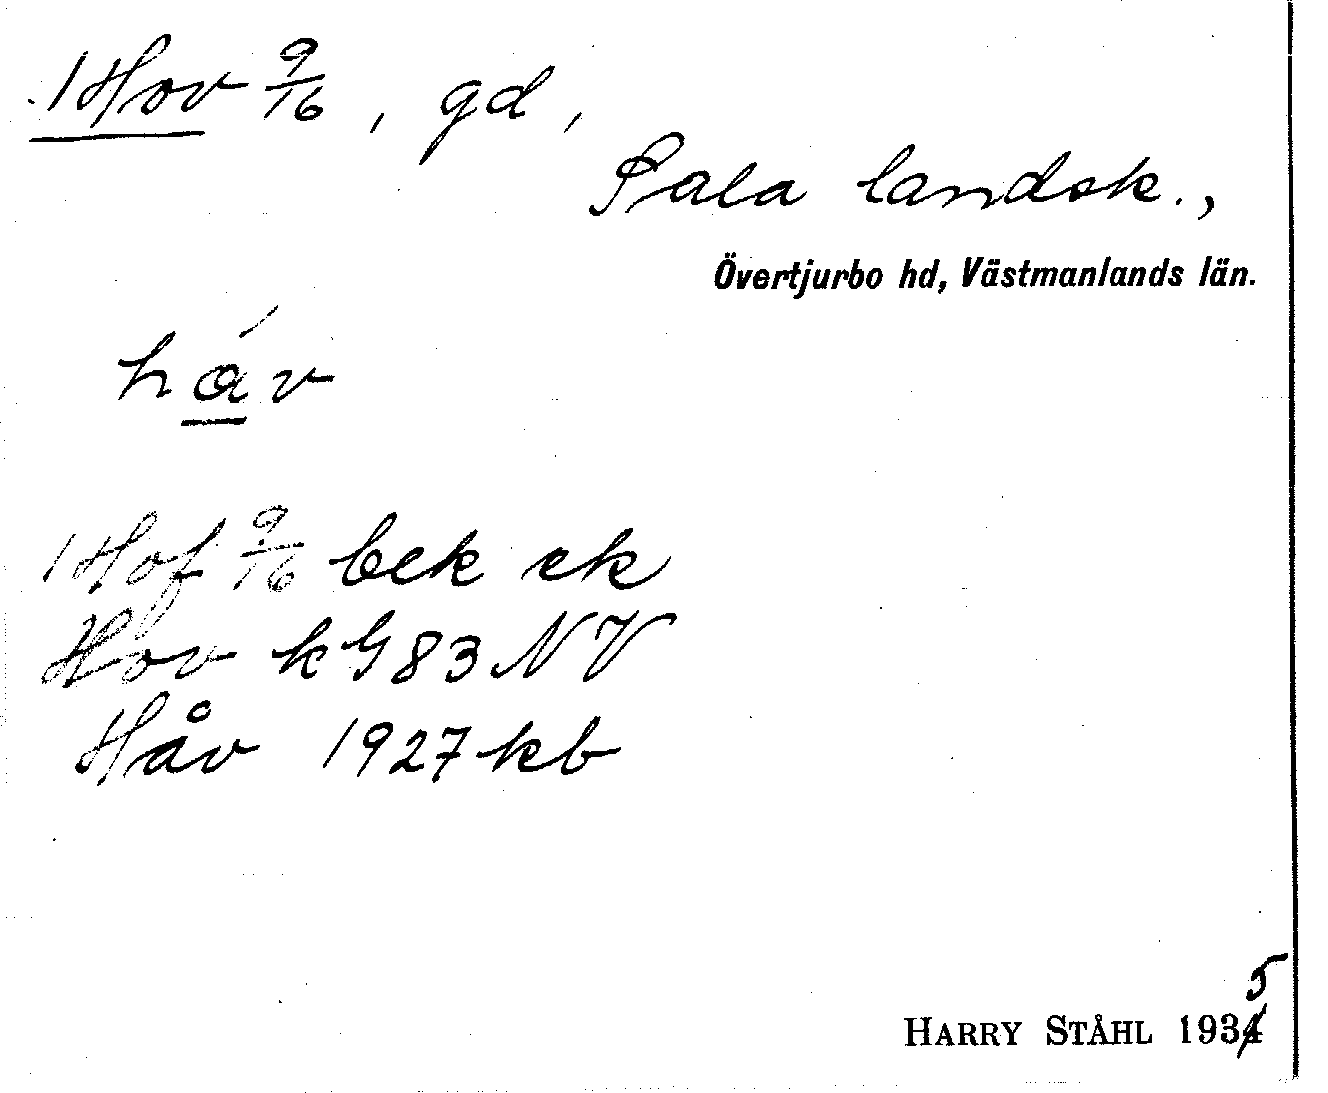 1 Hov 9/16, gd,
Sala landsk.,
Övertjurbo hd, Västmanlands län.
háv
1 Hof 9/16 bek ek
Hov kG83NV
Håv 1927 kb
HARRY STÅHL 1935